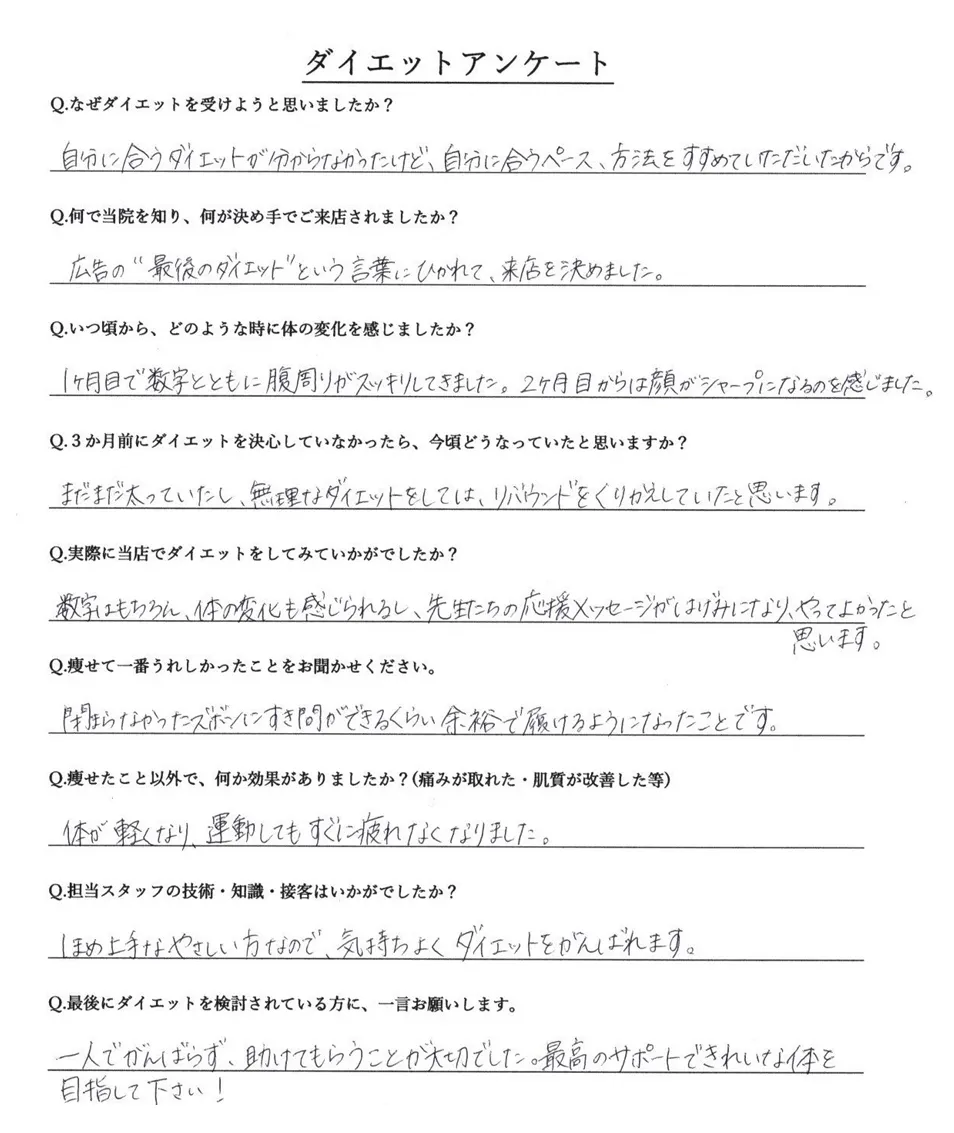 ダイエットアンケート
Q.なぜダイエットを受けようと思いましたか？
自分に合うダイエットが分からなかったけど、自分に合うペース、方法をすすめていただいたからです。
Q.何で当院を知り、何が決め手でご来店されましたか？
広告の“最後のダイエット”という言葉にひかれて、来店を決めました。
Q.いつ頃から、どのような時に体の変化を感じましたか？
1ヶ月目で数字とともに腹周りがスッキリしてきました。2ヶ月目からは顔がシャープになるのを感じました。
Q.３か月前にダイエットを決心していなかったら、今頃どうなっていたと思いますか？
まだまだ太っていたし、無理なダイエットをしては、リバウンドをくりかえしていたと思います。
Q.実際に当店でダイエットをしてみていかがでしたか？
数字はもちろん、体の変化も感じられるし、先生たちの応援メッセージがはげみになり、やってよかったと
思います。
Q.痩せて一番うれしかったことをお聞かせください。
閉まらなかったズボンにすき間ができるくらい余裕で履けるようになったことです。
Q.痩せたこと以外で、何か効果がありましたか？(痛みが取れた・肌質が改善した等)
体が軽くなり、運動してもすぐに疲れなくなりました。
Q.担当スタッフの技術・知識・接客はいかがでしたか？
ほめ上手なやさしい方なので、気持ちよくダイエットをがんばれます。
Q.最後にダイエットを検討されている方に、一言お願いします。
一人でがんばらず、助けてもらうことが大切でした。最高のサポートできれいな体を
目指して下さい！